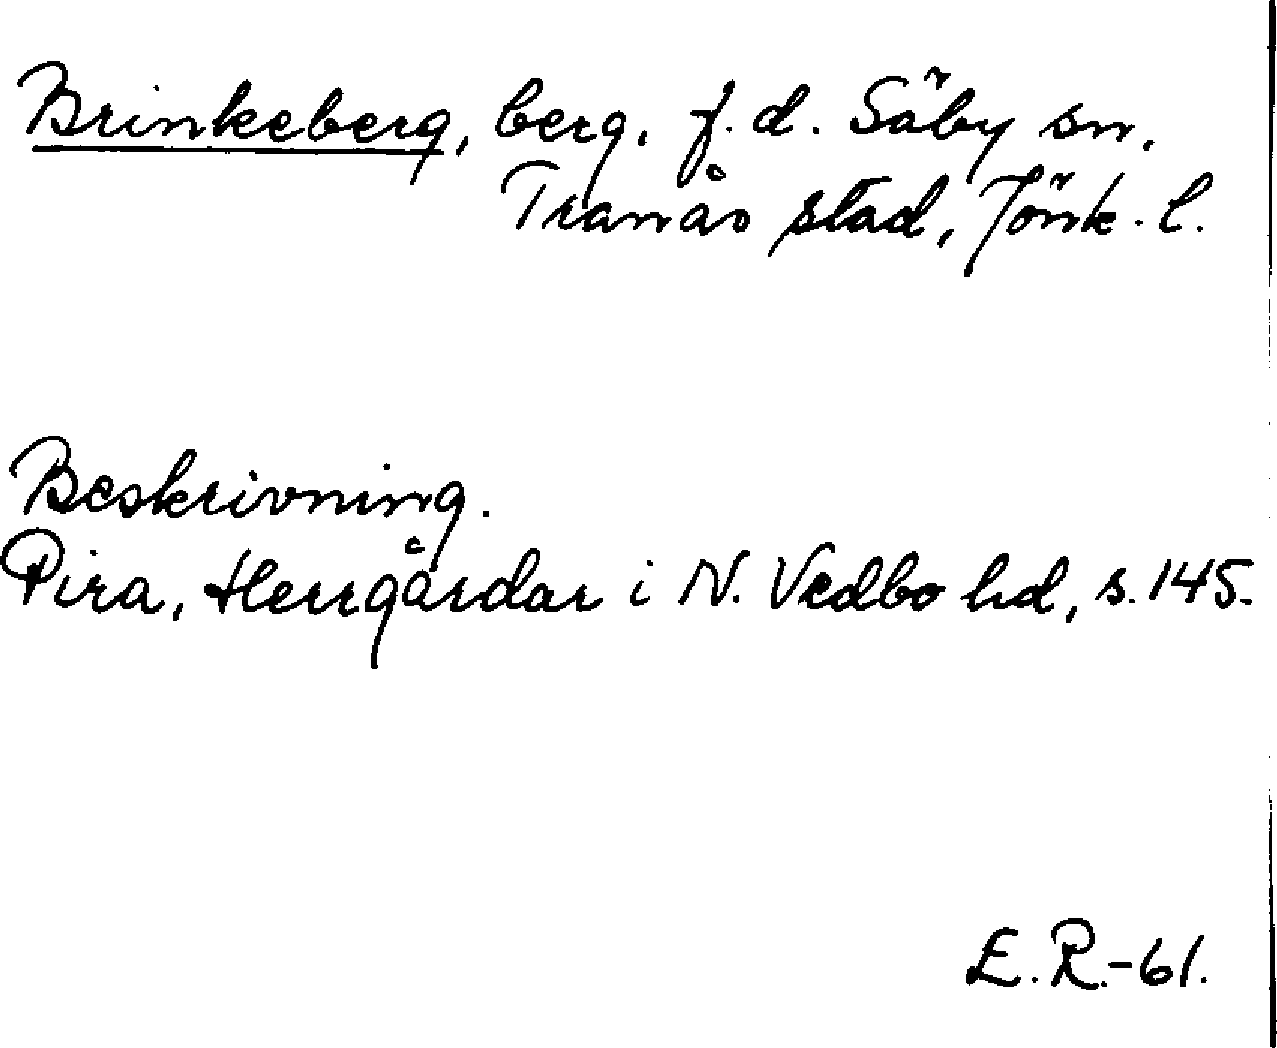 Brinkeberg, berg. f.d. Säby sn.
Tranås stad, Jönk. l.
Beskrivning.
Pira, Herrgårdar i N. Vedbo hd, s. 145.
E.R.-61.